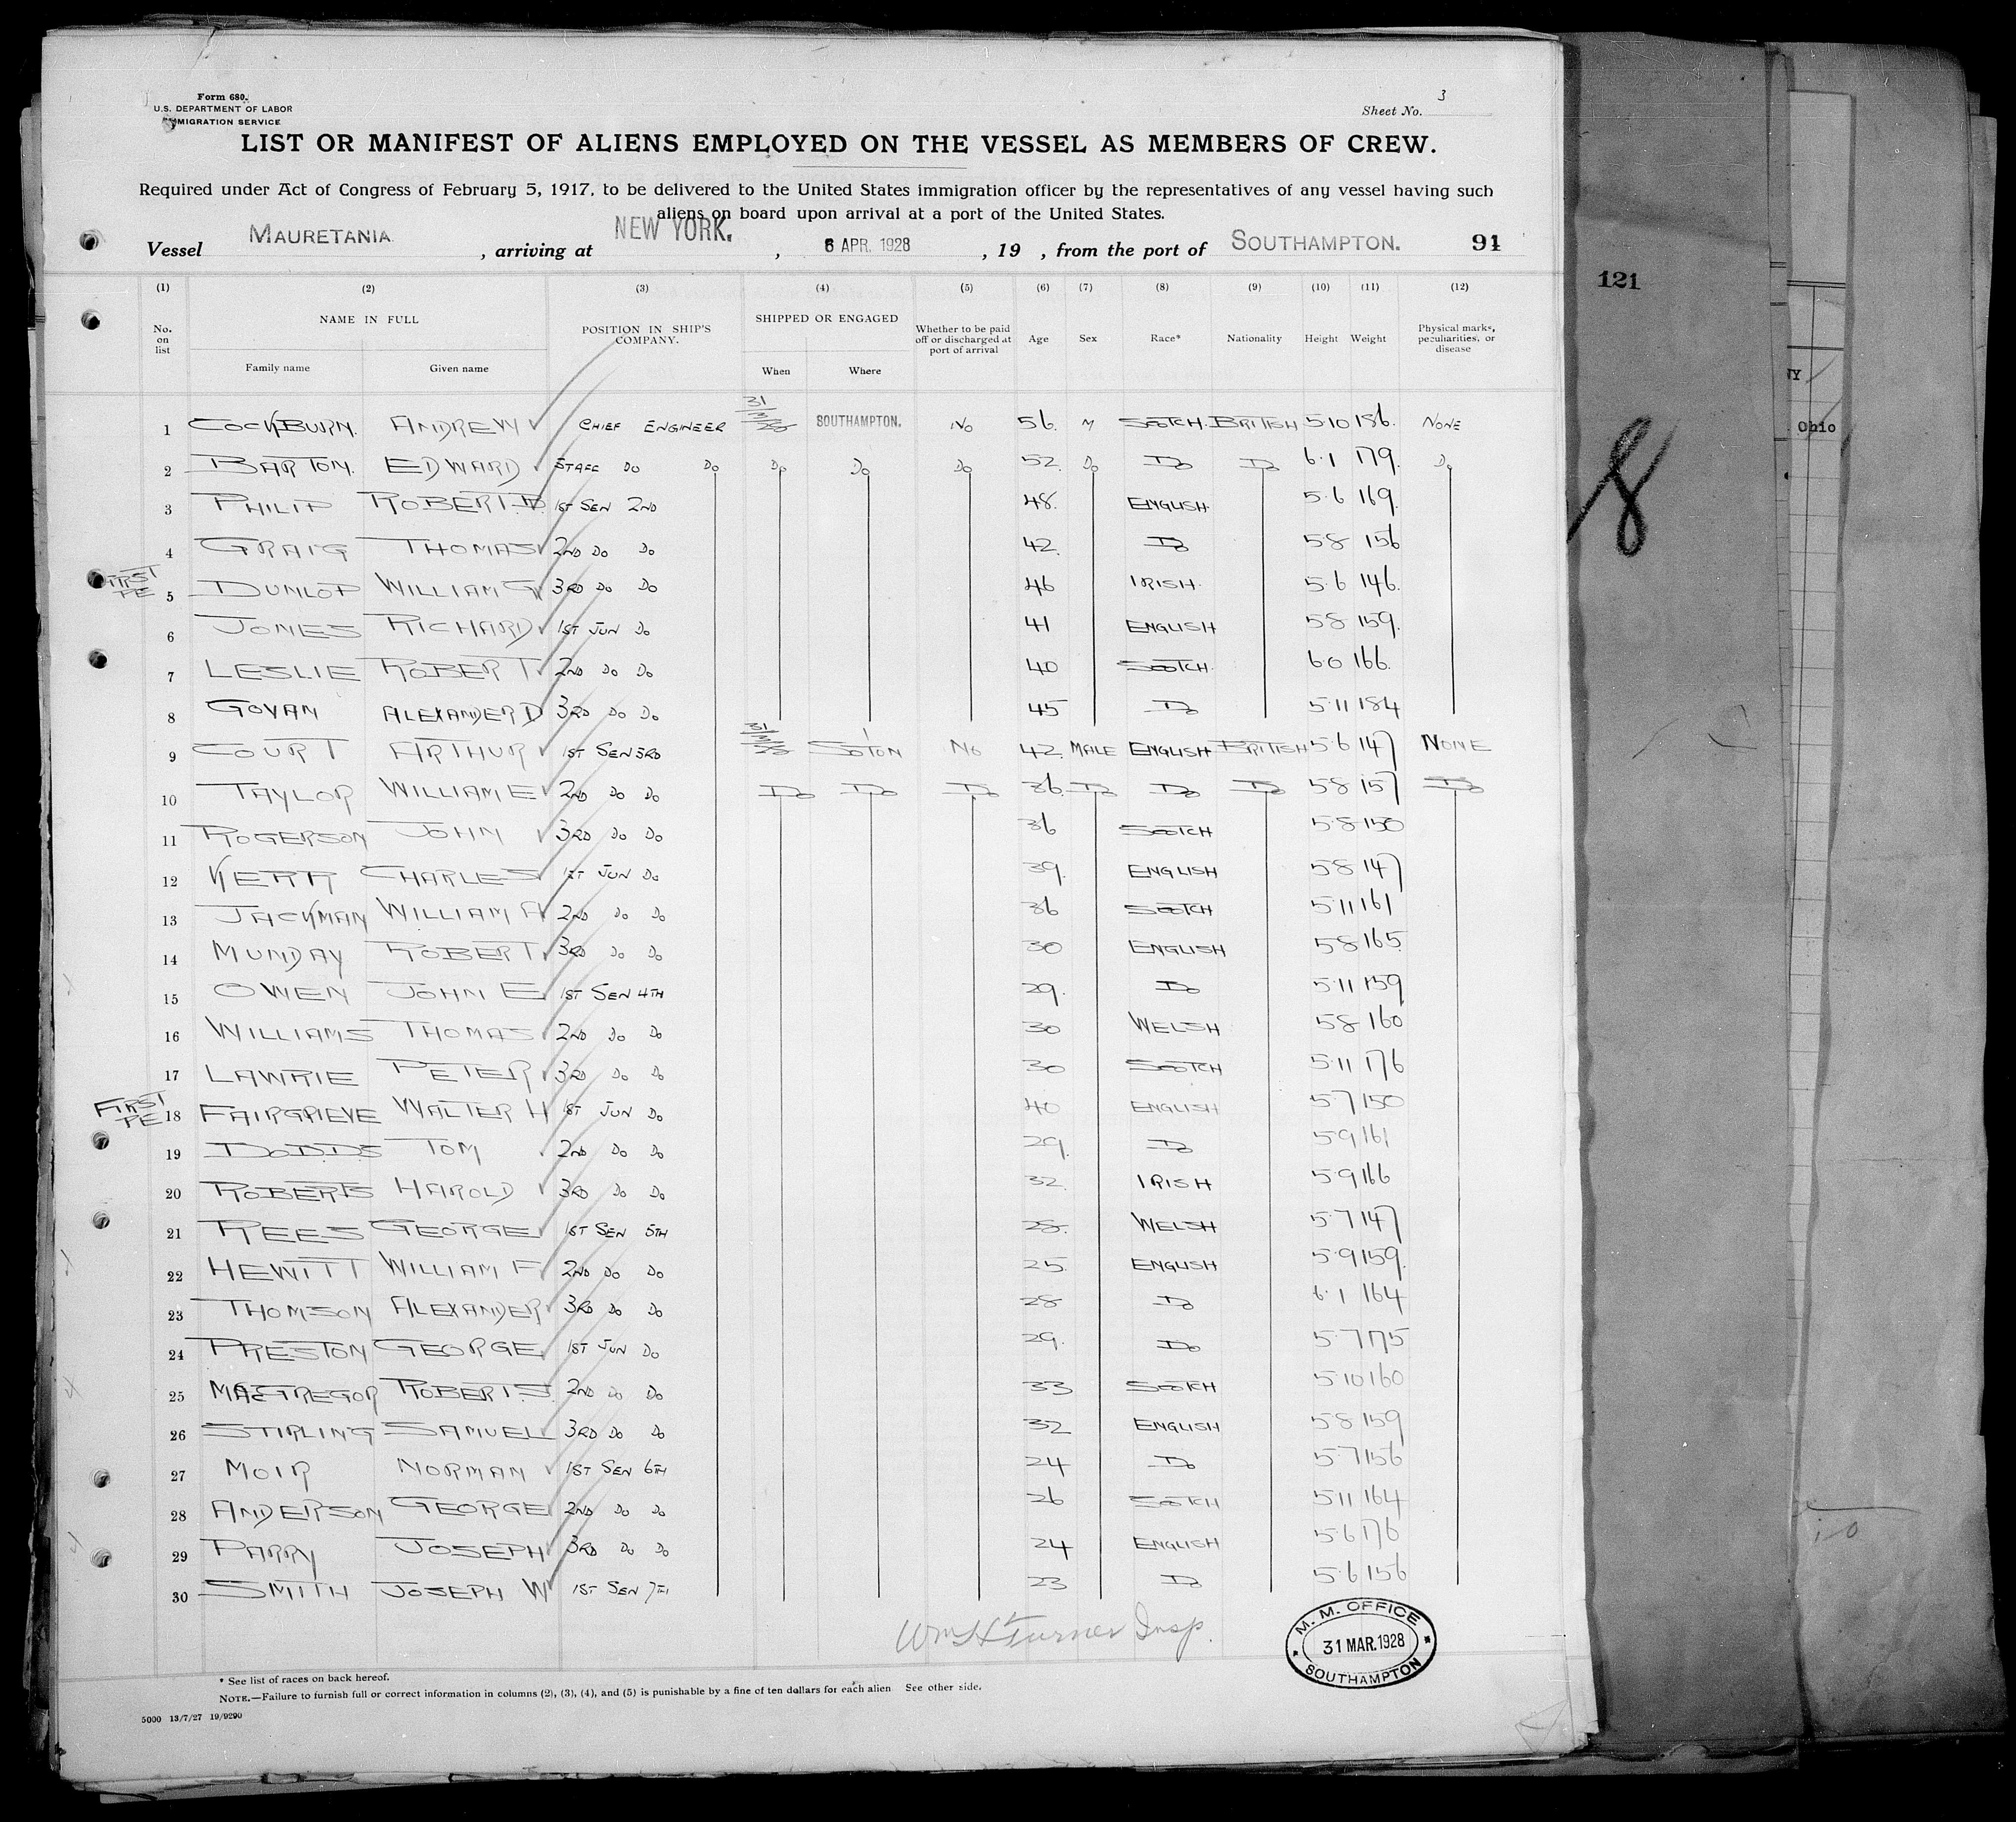 Form 680.
U.S. DEPARTMENT OF LABOR
IMMIGRATION SERVICE
Sheet No. 3
LIST OR MANIFEST OF ALIENS EMPLOYED ON THE VESSEL AS MEMBERS OF CREW.
Required under Act of Congress of February 5, 1917, to be delivered to the United States immigration officer by the representatives of any vessel having such
aliens on board upon arrival at a port of the United States.
Vessel MAURETANIA, arriving at NEW YORK., 6 APR. 1928, 19 , from the port of SOUTHAMPTON. 91
121
(1) (2) (3) (4) (5) (6) (7) (8) (9) (10) (11) (12)
No. on list NAME IN FULL Family name Given name POSITION IN SHIP'S COMPANY. SHIPPED OR ENGAGED When Where Whether to be paid off or discharged at port of arrival Age Sex Race* Nationality Height Weight Physical marks, peculiarities, or disease
1 COCKBURN. ANDREW CHIEF ENGINEER 31/3/28 SOUTHAMPTON. NO 56. M SCOTCH. BRITISH 5.10 186. NONE
2 BARTON. EDWARD STAFF DO DO DO DO DO 52. DO DO DO 6.1 179. DO
3 PHILIP ROBERT.B. 1ST SEN 2ND 48. ENGLISH. 5.6 169.
4 GRAIG THOMAS 2ND DO DO 42. DO 5.8 156
FIRST PE 5 DUNLOP WILLIAM G 3RD DO DO 46 IRISH. 5.6 146.
6 JONES RICHARD 1ST JUN DO 41 ENGLISH 5.8 159.
7 LESLIE ROBERT 2ND DO DO 40 SCOTCH. 6.0 166.
8 GOVAN ALEXANDER D 3RD DO DO 45 DO 5.11 184
9 COURT ARTHUR 1ST SEN 3RD 31/3/28 SOTON NO 42. MALE ENGLISH BRITISH 5.6 147 NONE
10 TAYLOR WILLIAM E 2ND DO DO DO DO DO 36. DO DO DO 5.8 157 DO
11 ROGERSON JOHN 3RD DO DO 36 SCOTCH 5.8 150
12 KERR CHARLES 1ST JUN DO 39. ENGLISH 5.8 147
13 JACKMAN WILLIAM A 2ND DO DO 36 SCOTCH 5.11 161
14 MUNDAY ROBERT. 3RD DO DO 30 ENGLISH 5.8 165
15 OWEN JOHN E 1ST SEN 4TH 29. DO 5.11 159
16 WILLIAMS THOMAS 2ND DO DO 30 WELSH 5.8 160
17 LAWRIE PETER 3RD DO DO 30 SCOTCH 5.11 176
FIRST PE 18 FAIRGRIEVE WALTER H 1ST JUN DO 40 ENGLISH 5.7 150
19 DODDS TOM 2ND DO DO 29. DO 5.9 161
20 ROBERTS HAROLD 3RD DO DO 32. IRISH 5.9 166
21 REES GEORGE 1ST SEN 5TH 28. WELSH 5.7 147
22 HEWITT WILLIAM F 2ND DO DO 25. ENGLISH 5.9 159.
23 THOMSON ALEXANDER 3RD DO DO 28 DO 6.1 164
24 PRESTON GEORGE 1ST JUN DO 29. DO 5.7 175
25 MACGREGOR ROBERT S 2ND DO DO 33 SCOTCH 5.10 160
26 STIRLING SAMUEL 3RD DO DO 32 ENGLISH 5.8 159
27 MOIR NORMAN 1ST SEN 6TH 24 DO 5.7 156
28 ANDERSON GEORGE 2ND DO DO 26 SCOTCH 5.11 164
29 PARRY JOSEPH 3RD DO DO 24 ENGLISH 5.6 176
30 SMITH JOSEPH W 1ST SEN 7TH 23 DO 5.6 156
Wm H Turner Insp.
M. M. OFFICE
31 MAR. 1928
SOUTHAMPTON
* See list of races on back hereof.
NOTE.—Failure to furnish full or correct information in columns (2), (3), (4), and (5) is punishable by a fine of ten dollars for each alien See other side.
5000 13/7/27 19/9290
8
NY
Ohio